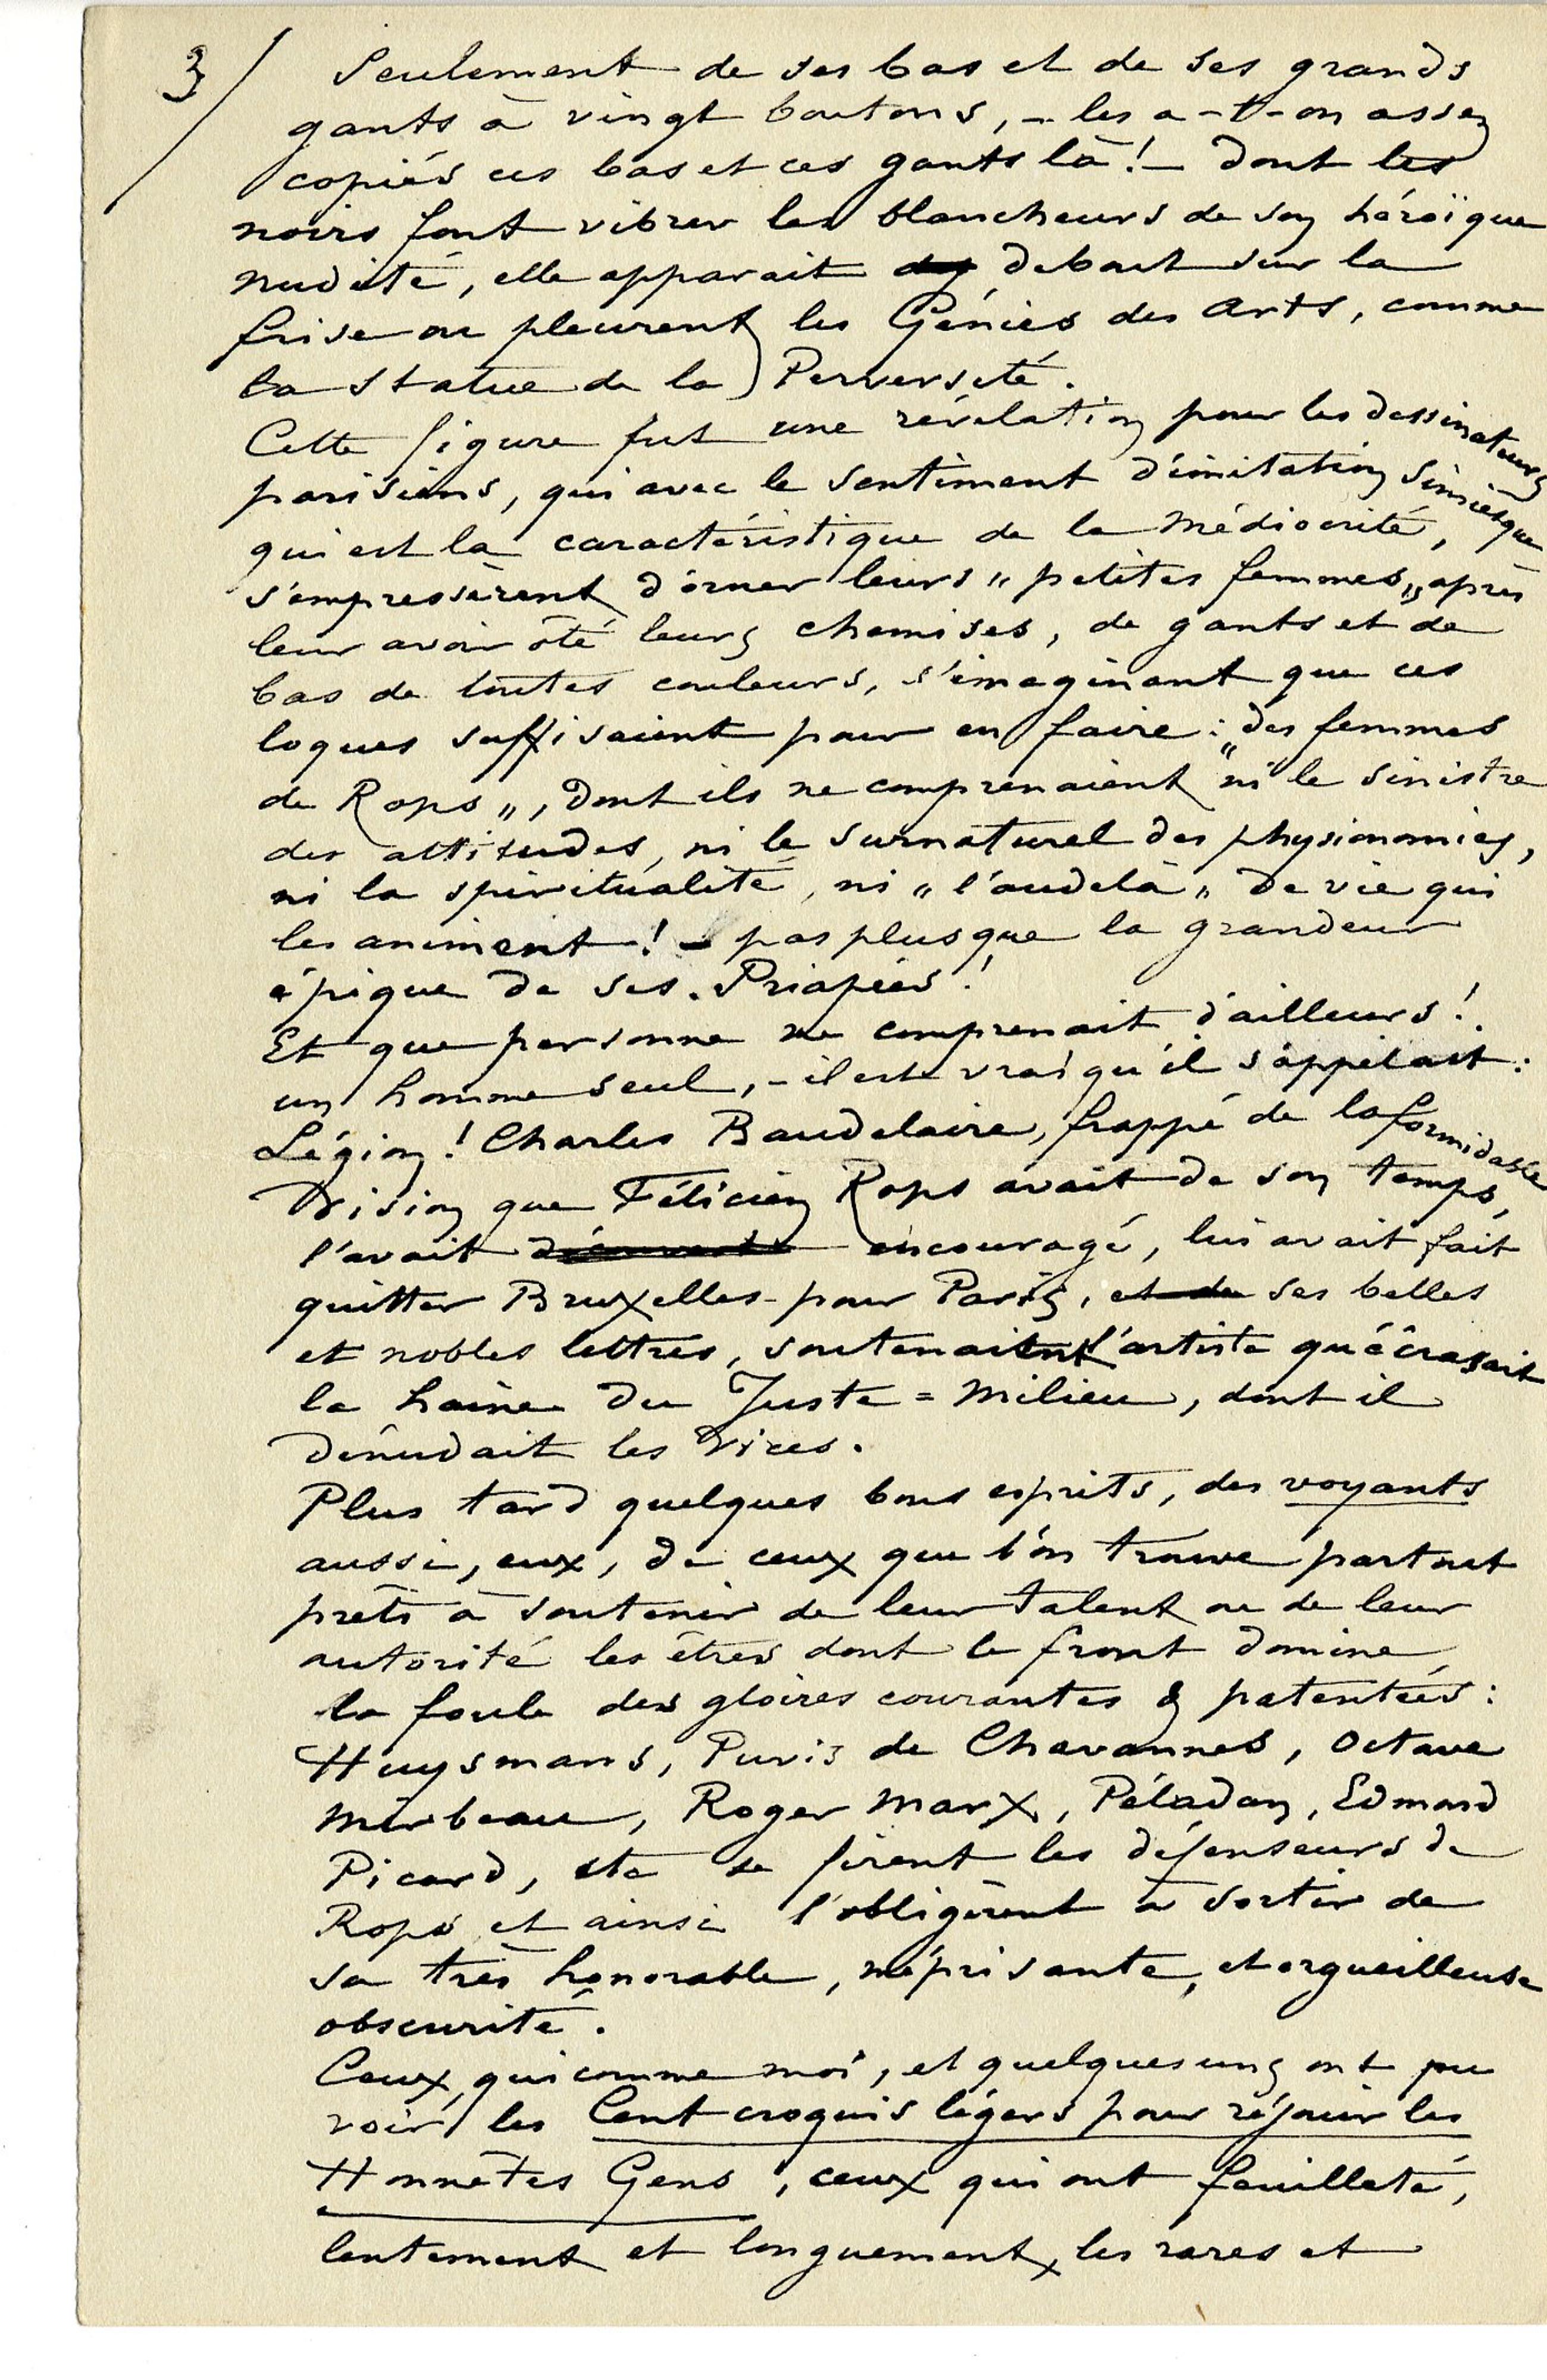 3/ Seulement de ses bas et de ses grands
gants à vingt boutons, – les a-t-on assez
copiés ces bas et ces gants là! – dont les
noirs font vibrer les blancheurs de son héroïque
nudité, elle apparait debout sur la
frise ou pleurent les Génies des Arts, comme
la Statue de la Perversité.
Cette figure fut une révélation pour les dessinateurs
parisiens, qui avec le sentiment d'imitation simiesque
qui est la caractéristique de la Médiocrité,
s'empressèrent d'orner leurs „ petites femmes „ après
leur avoir ôté leurs chemises, de gants et de
bas de toutes couleurs, s'imaginant que ces
loques suffisaient pour en faire : „ des femmes
de Rops „, dont ils ne comprenaient ni le sinistre
des attitudes, ni le surnaturel des physionomies,
ni la spiritualité, ni „ l'audelà „ de vie qui
les animent! – pas plus que la grandeur
épique de ses Priapées!
Et que personne ne comprenait d'ailleurs!
un homme seul, – il est vrai qu'il s'appelait :
Légion! Charles Baudelaire, frappé de la formidable
Vision que Félicien Rops avait de son temps,
l'avait découvert encouragé, lui avait fait
quitter Bruxelles pour Paris, et de ses belles
et nobles lettres, soutenait l'artiste qu'écrasait
la haine du Juste = Milieu, dont il
dénudait les Vices.
Plus tard quelques bons esprits, des voyants
aussi, eux, de ceux que l'on trouve partout
prêts à soutenir de leur talent ou de leur
autorité les êtres dont le front domine
la foule des gloires courantes & patentées :
Huysmans, Puvis de Chavannes, Octave
Mirbeau, Roger Marx, Péladan, Edmond
Picard, etc se firent les défenseurs de
Rops et ainsi l'obligèrent à sortir de
sa très honorable, méprisante, et orgueilleuse
obscurité.
Ceux, qui comme moi, et quelquesuns ont pu
voir les Cent croquis légers pour réjouir les
Honnêtes Gens, ceux qui ont feuilleté,
lentement et longuement, les rares et